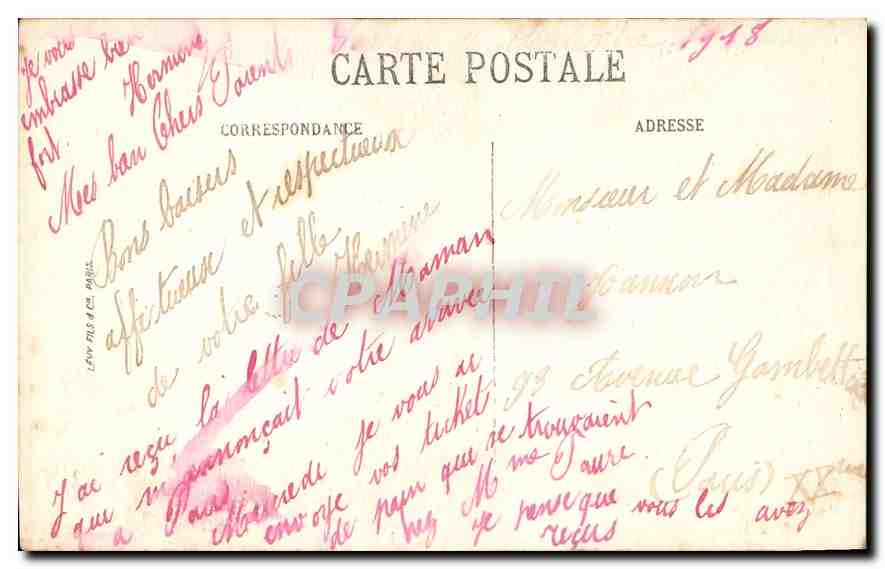 1918
CARTE POSTALE
CORRESPONDANCE
ADRESSE
Mes bon Chers Parents
Bons baisers
affectueux et respectueux
de votre fille
Hermine
J'ai reçu la lettre de Maman
que m'annonçait votre arrivée
a Paris
Mercredi je vous ai
envoyé vos ticket
de pain que se trouvaient
chez Mme Faure.
Je pense que vous les avez
reçus
Je vous
embrasse bien
fort. Hermine
Monsieur et Madame
99 Avenue Gambetta
(Paris) XXme
LEVY FILS & Cie, PARIS
CPAPHIL